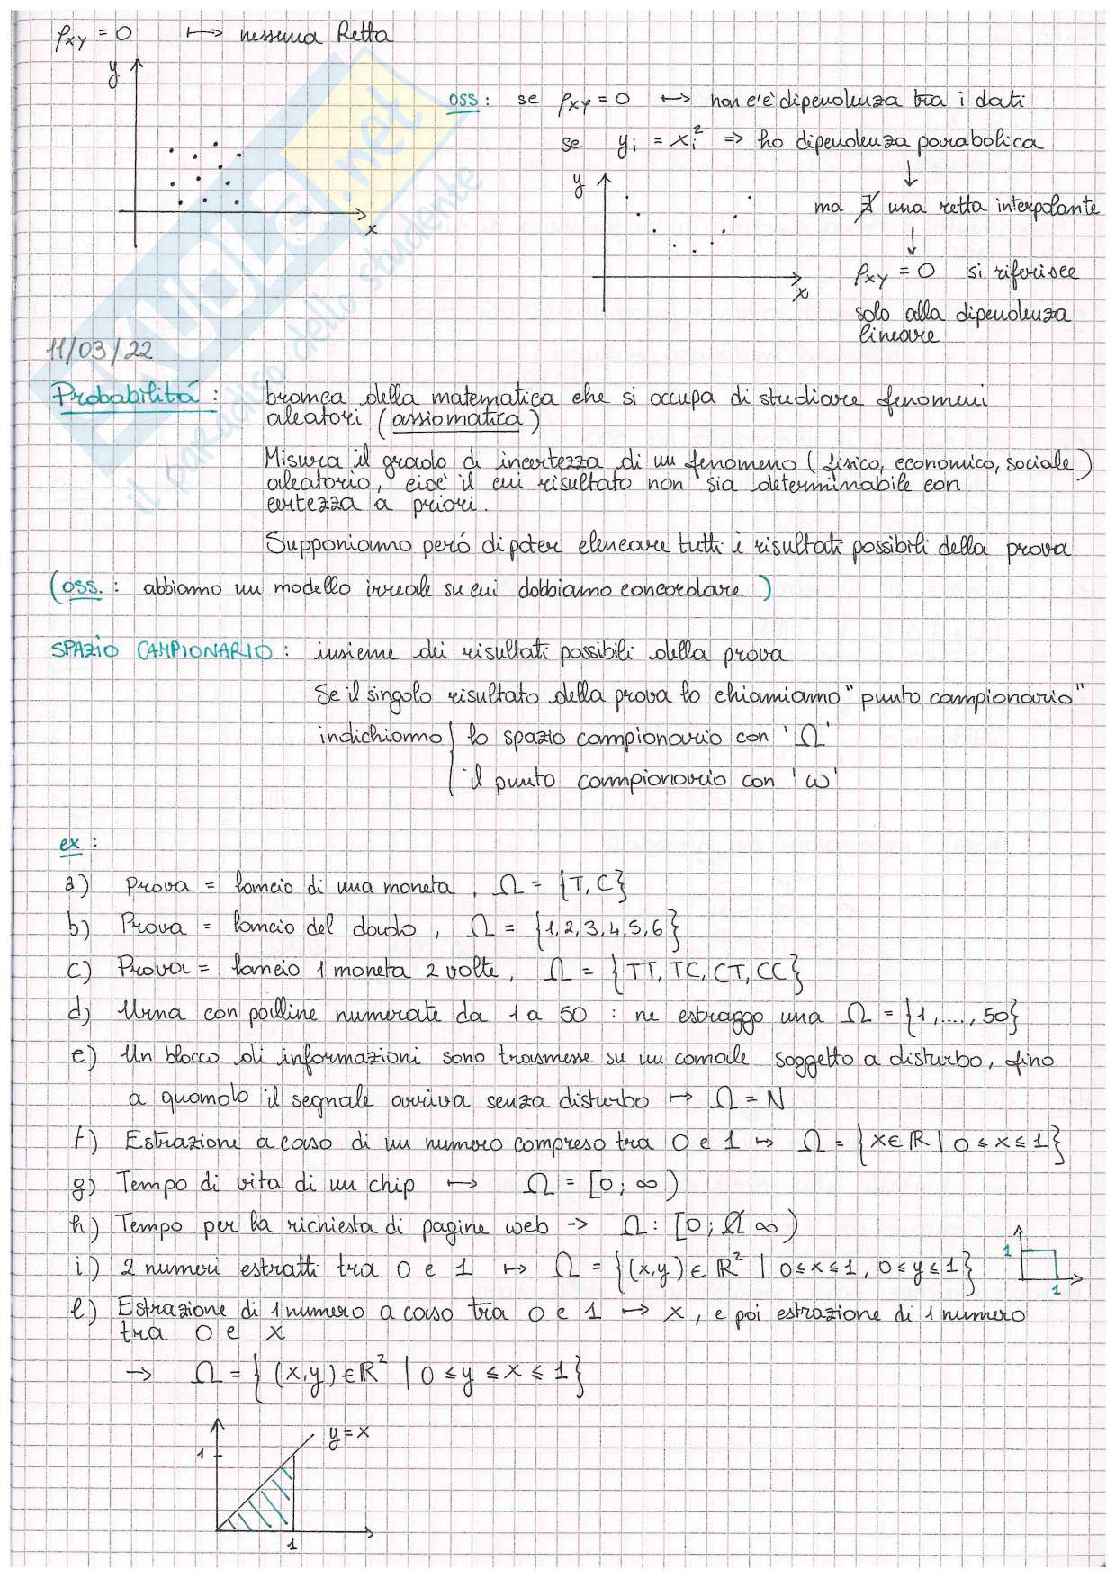 ρxy = 0 ↦ nessuna Retta
y
x
oss: se ρxy = 0 ↦ non c'è dipendenza tra i dati
se yi = xi² => ho dipendenza parabolica
↓
ma ∄ una retta interpolante
↓
ρxy = 0 si riferisce
solo alla dipendenza
lineare
y
x
11/03/22
Probabilitá: branca della matematica che si occupa di studiare fenomeni
aleatori (assiomatica)
Misura il grado di incertezza di un fenomeno (fisico, economico, sociale)
aleatorio, cioè il cui risultato non sia determinabile con
certezza a priori.
Supponiamo peró di poter elencare tutti i risultati possibili della prova
(oss.: abbiamo un modello irreale su cui dobbiamo concordare)
SPAZIO CAMPIONARIO: insieme dei risultati possibili della prova
Se il singolo risultato della prova lo chiamiamo "punto campionario"
indichiamo { lo spazio campionario con 'Ω'
il punto campionario con 'ω'
ex:
a) Prova = lancio di una moneta, Ω = {T, C}
b) Prova = lancio del dado, Ω = {1,2,3,4,5,6}
c) Prova = lancio 1 moneta 2 volte, Ω = {TT, TC, CT, CC}
d) Urna con palline numerate da 1 a 50 : ne estraggo una Ω = {1,...., 50}
e) Un blocco di informazioni sono trasmesse su un canale soggetto a disturbo, fino
a quando il segnale arriva senza disturbo ↦ Ω = N
f) Estrazione a caso di un numero compreso tra 0 e 1 ↦ Ω = {x∈ℝ | 0 ≤ x ≤ 1}
g) Tempo di vita di un chip ↦ Ω = [0; ∞)
h) Tempo per la richiesta di pagine web -> Ω: [0; ∞)
i) 2 numeri estratti tra 0 e 1 ↦ Ω = {(x,y) ∈ ℝ² | 0≤x≤1, 0≤y≤1}
1
1
l) Estrazione di 1 numero a caso tra 0 e 1 → x, e poi estrazione di 1 numero
tra 0 e x
→ Ω = {(x,y) ∈ ℝ² | 0 ≤ y ≤ x ≤ 1}
y = x
1
1
.net
il paradiso dello studente